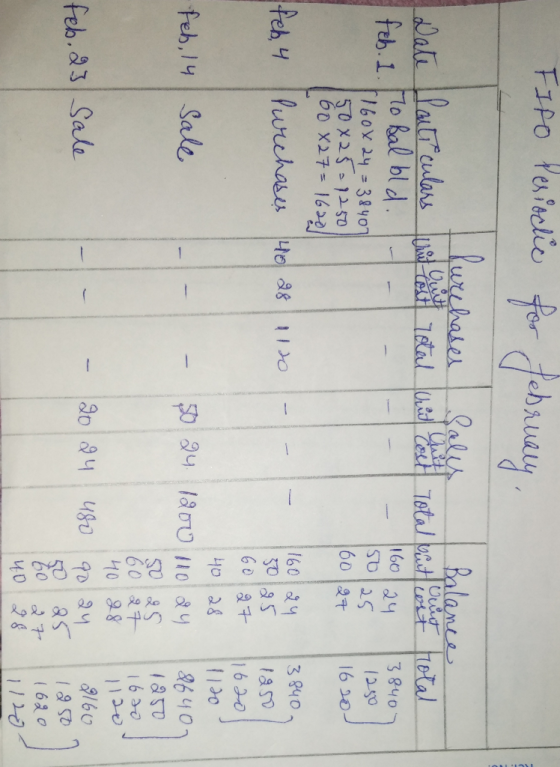 FIFO Periodic for February.
Purchases Sales Balance
Date Particulars Unit Unit Cost Total Unit Unit Cost Total Unit Unit Cost Total
Feb. 1. To Bal b/d. - - - - - - 160 24 3840
[160 x 24 = 3840 50 25 1250
50 x 25 = 1250 60 27 1620
60 x 27 = 1620]
Feb. 4 Purchases 40 28 1120 - - - 160 24 3840
50 25 1250
60 27 1620
40 28 1120
Feb. 14 Sale - - - 50 24 1200 110 24 2640
50 25 1250
60 27 1620
40 28 1120
Feb. 23 Sale - - - 20 24 480 90 24 2160
50 25 1250
60 27 1620
40 28 1120